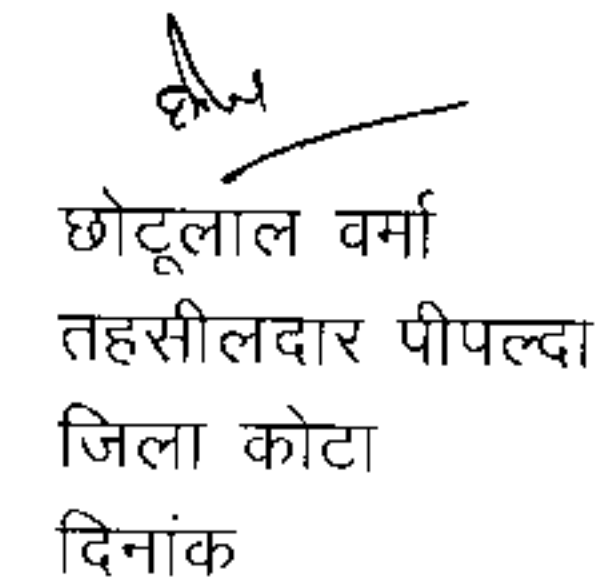 छोटूलाल वर्मा
तहसीलदार पीपल्दा
जिला कोटा
दिनांक